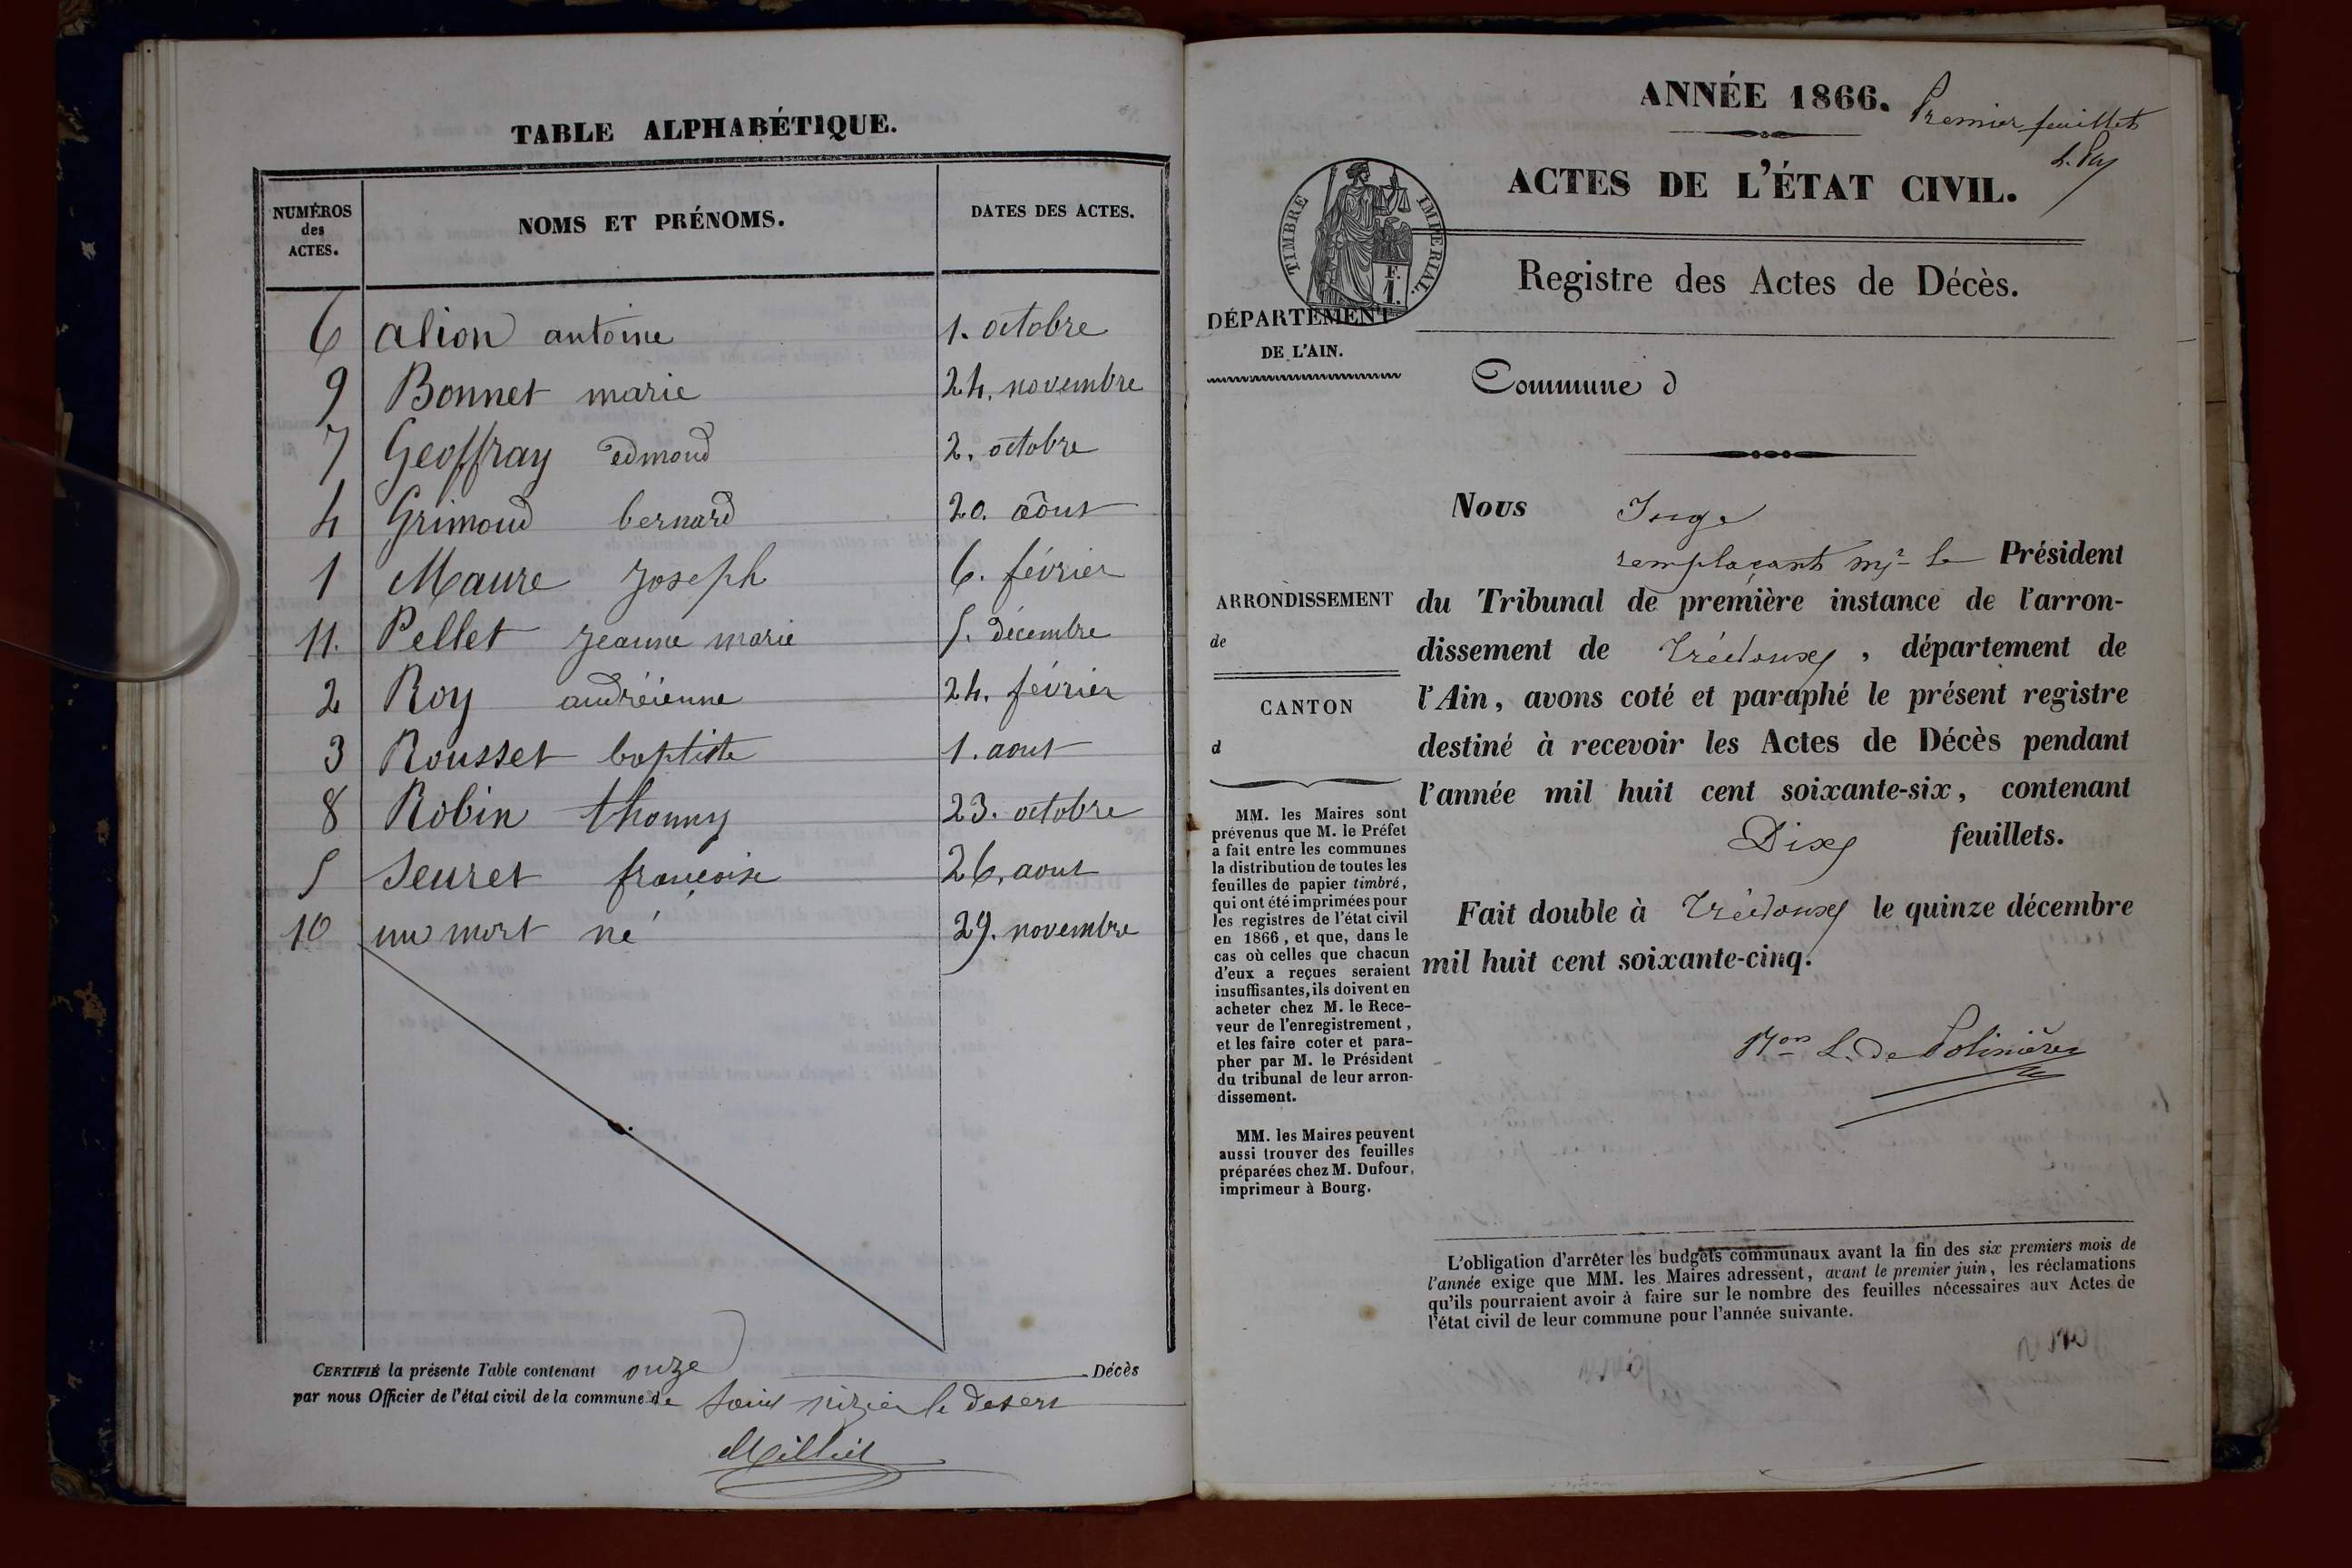 TABLE ALPHABÉTIQUE.
NUMÉROS des ACTES. NOMS ET PRÉNOMS. DATES DES ACTES.
6 alion antoine 1. octobre
9 Bonnet marie 24. novembre
7 Geoffray edmond 2. octobre
4 Grimoud bernard 20. août
1 Maure joseph 6. février
11. Pellet jeanne marie 5. décembre
2 Roy andréienne 24. février
3 Rousset baptiste 1. aout
8 Robin thomny 23. octobre
5 Seuret françoise 26. aout
10 un mort né 29. novembre
CERTIFIÉ la présente Table contenant onze Décès
par nous Officier de l'état civil de la commune de Saint nizier le desert
Milliet
ANNÉE 1866.
Premier feuillet
ACTES DE L'ÉTAT CIVIL.
TIMBRE IMPERIAL.
F.
1.
Registre des Actes de Décès.
DÉPARTEMENT
DE L'AIN.
Commune d
Nous Juge
remplaçant Mr le Président
ARRONDISSEMENT
de
CANTON
d
du Tribunal de première instance de l'arron-
dissement de Trévoux, département de
l'Ain, avons coté et paraphé le présent registre
destiné à recevoir les Actes de Décès pendant
l'année mil huit cent soixante-six, contenant
Dix feuillets.
Fait double à Trévoux le quinze décembre
mil huit cent soixante-cinq.
Bon L. de Polinière
MM. les Maires sont
prévenus que M. le Préfet
a fait entre les communes
la distribution de toutes les
feuilles de papier timbré,
qui ont été imprimées pour
les registres de l'état civil
en 1866, et que, dans le
cas où celles que chacun
d'eux a reçues seraient
insuffisantes, ils doivent en
acheter chez M. le Rece-
veur de l'enregistrement,
et les faire coter et para-
pher par M. le Président
du tribunal de leur arron-
dissement.
MM. les Maires peuvent
aussi trouver des feuilles
préparées chez M. Dufour,
imprimeur à Bourg.
L'obligation d'arrêter les budgets communaux avant la fin des six premiers mois de
l'année exige que MM. les Maires adressent, avant le premier juin, les réclamations
qu'ils pourraient avoir à faire sur le nombre des feuilles nécessaires aux Actes de
l'état civil de leur commune pour l'année suivante.